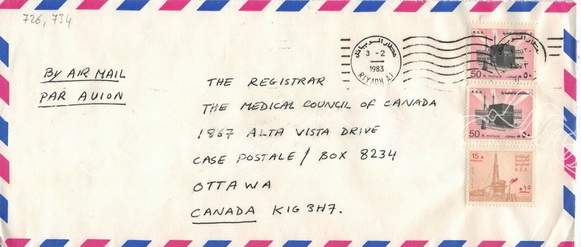 726, 734
BY AIR MAIL
PAR AVION
3-2
1983
RIYADH A1
THE REGISTRAR
THE MEDICAL COUNCIL OF CANADA
1867 ALTA VISTA DRIVE
CASE POSTALE / BOX 8234
OTTAWA
CANADA K1G 3H7.
50
50
15